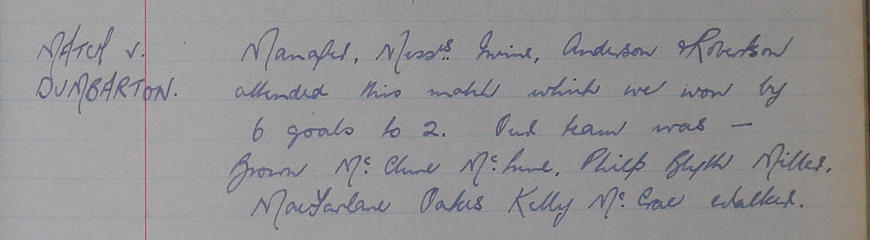 MATCH v.
DUMBARTON.
Manager, Messrs. Irvine, Anderson & Robertson
attended this match which we won by
6 goals to 2. Our team was —
Brown McClure McLure, Philp Blyth Miller,
MacFarlane Oakes Kelly McCrae Walker.